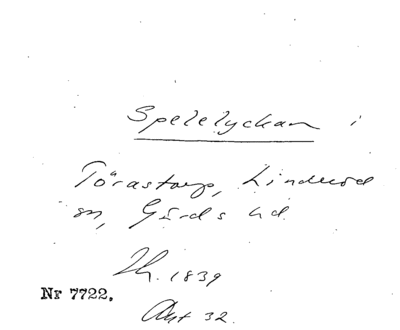 Spelelyckan i
Törastorp, Linderöd
sn, Gärds hd.
Ih. 1839
Nr 7722.
Akt 32.